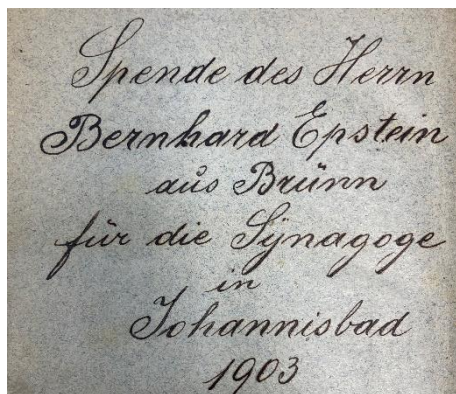 Spende des Herrn
Bernhard Epstein
aus Brünn
für die Synagoge
in
Johannisbad
1903